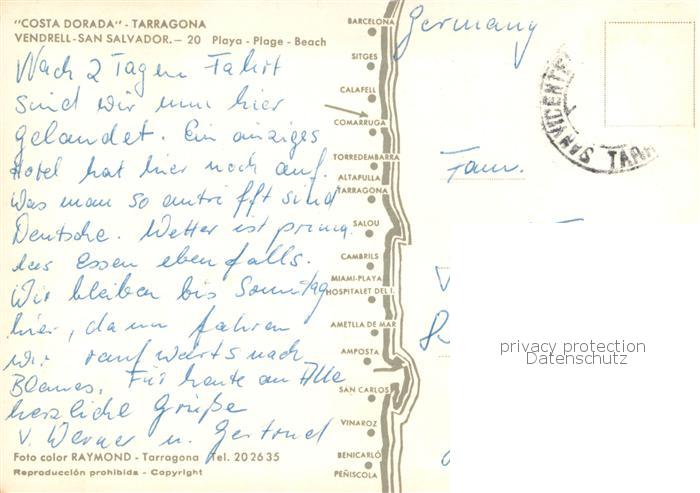 "COSTA DORADA" - TARRAGONA
VENDRELL-SAN SALVADOR. — 20 Playa - Plage - Beach
Nach 2 Tagen Fahrt
sind wir nun hier
gelandet. Ein einziges
Hotel hat hier noch auf.
Was man so antrifft sind
Deutsche. Wetter ist prima
das Essen ebenfalls.
Wir bleiben bis Sonntag
hier, dann fahren
wir raufwärts nach
Blanes. Für heute an Alle
herzliche Grüße
v. Werner u. Gertrud
Foto color RAYMOND - Tarragona Tel. 20 26 35
Reproducción prohibida - Copyright
BARCELONA
SITGES
CALAFELL
COMARRUGA
TORREDEMBARRA
ALTAFULLA
TARRAGONA
SALOU
CAMBRILS
MIAMI-PLAYA
HOSPITALET DEL I.
AMETLLA DE MAR
AMPOSTA
SAN CARLOS
VINAROZ
BENICARLÓ
PEÑISCOLA
Germany
SAN VICENTE
TARR
Fam.
privacy protection
Datenschutz